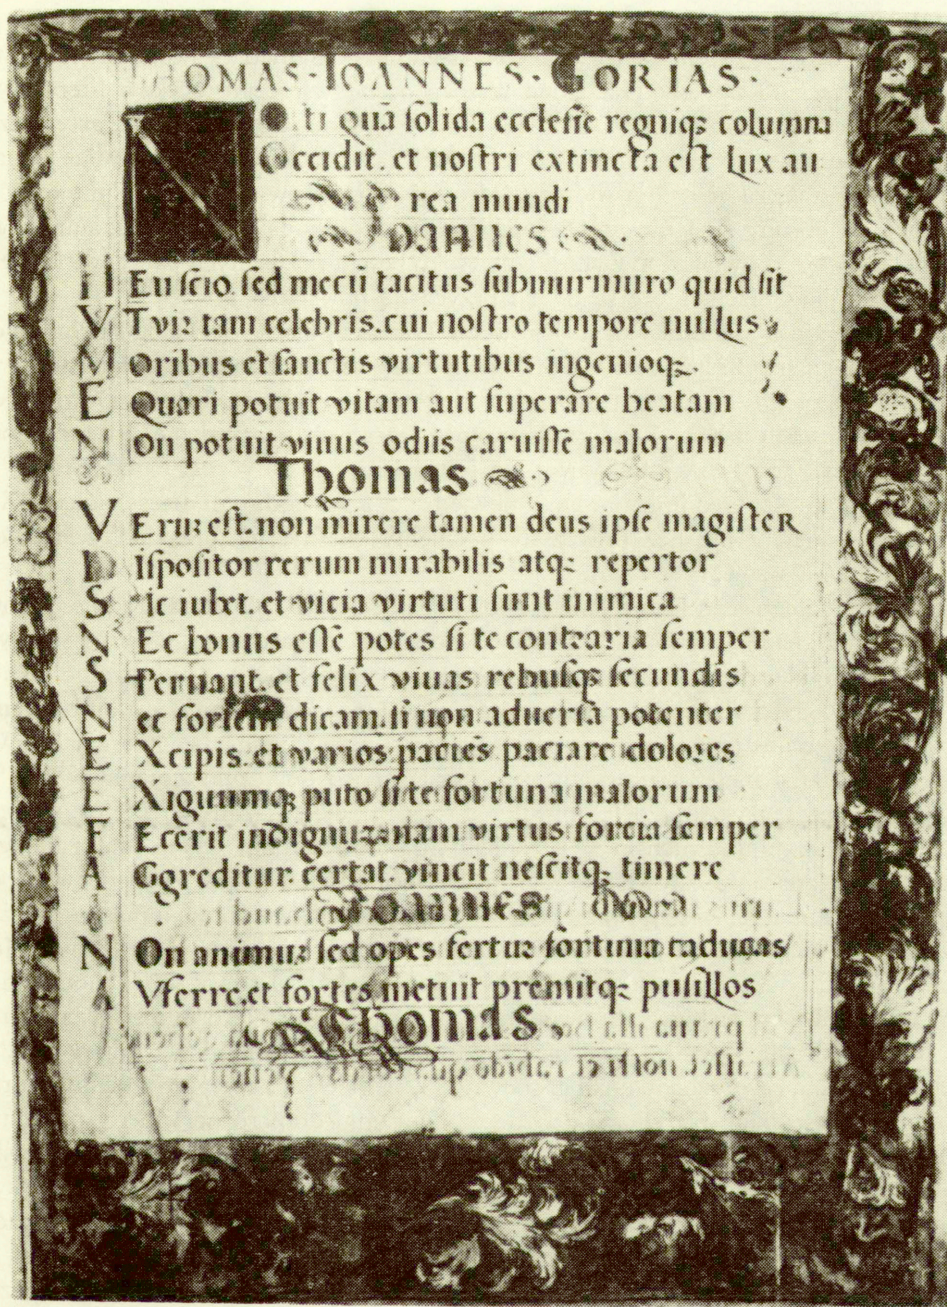 THOMAS · IOANNES · GORIAS ·
NO.ti quā solida ecclesię regniq; columna
Occidit. et nostri extincta est Lux au
rea mundi
Ioannes
HEu scio. sed mecū tacitus submurmuro quid sit
VT vir tam celebris. cui nostro tempore nullus
MOribus et sanctis virtutibus ingenioq;
EQuari potuit vitam aut superare beatam
NOn potuit viuus odiis caruisse malorum
Thomas
VErum est. non mirere tamen deus ipse magister
DIspositor rerum mirabilis atq; repertor
SIc iubet. et vicia virtuti sunt inimica
NEc bonus esse potes si te contraria semper
SPernant. et felix viuas rebusq; secundis
Nec fortem dicam. si non aduersa potenter
EXcipis. et varios paciēs paciare dolores
EXiguumq; puto si te fortuna malorum
FEcerit indignum. nam virtus forcia semper
AGgreditur. certat. vincit nescitq; timere
Ioannes
NOn animum sed opes fertur fortuna caducas
AVferre. et fortes metuit premitq; pusillos
Thomas